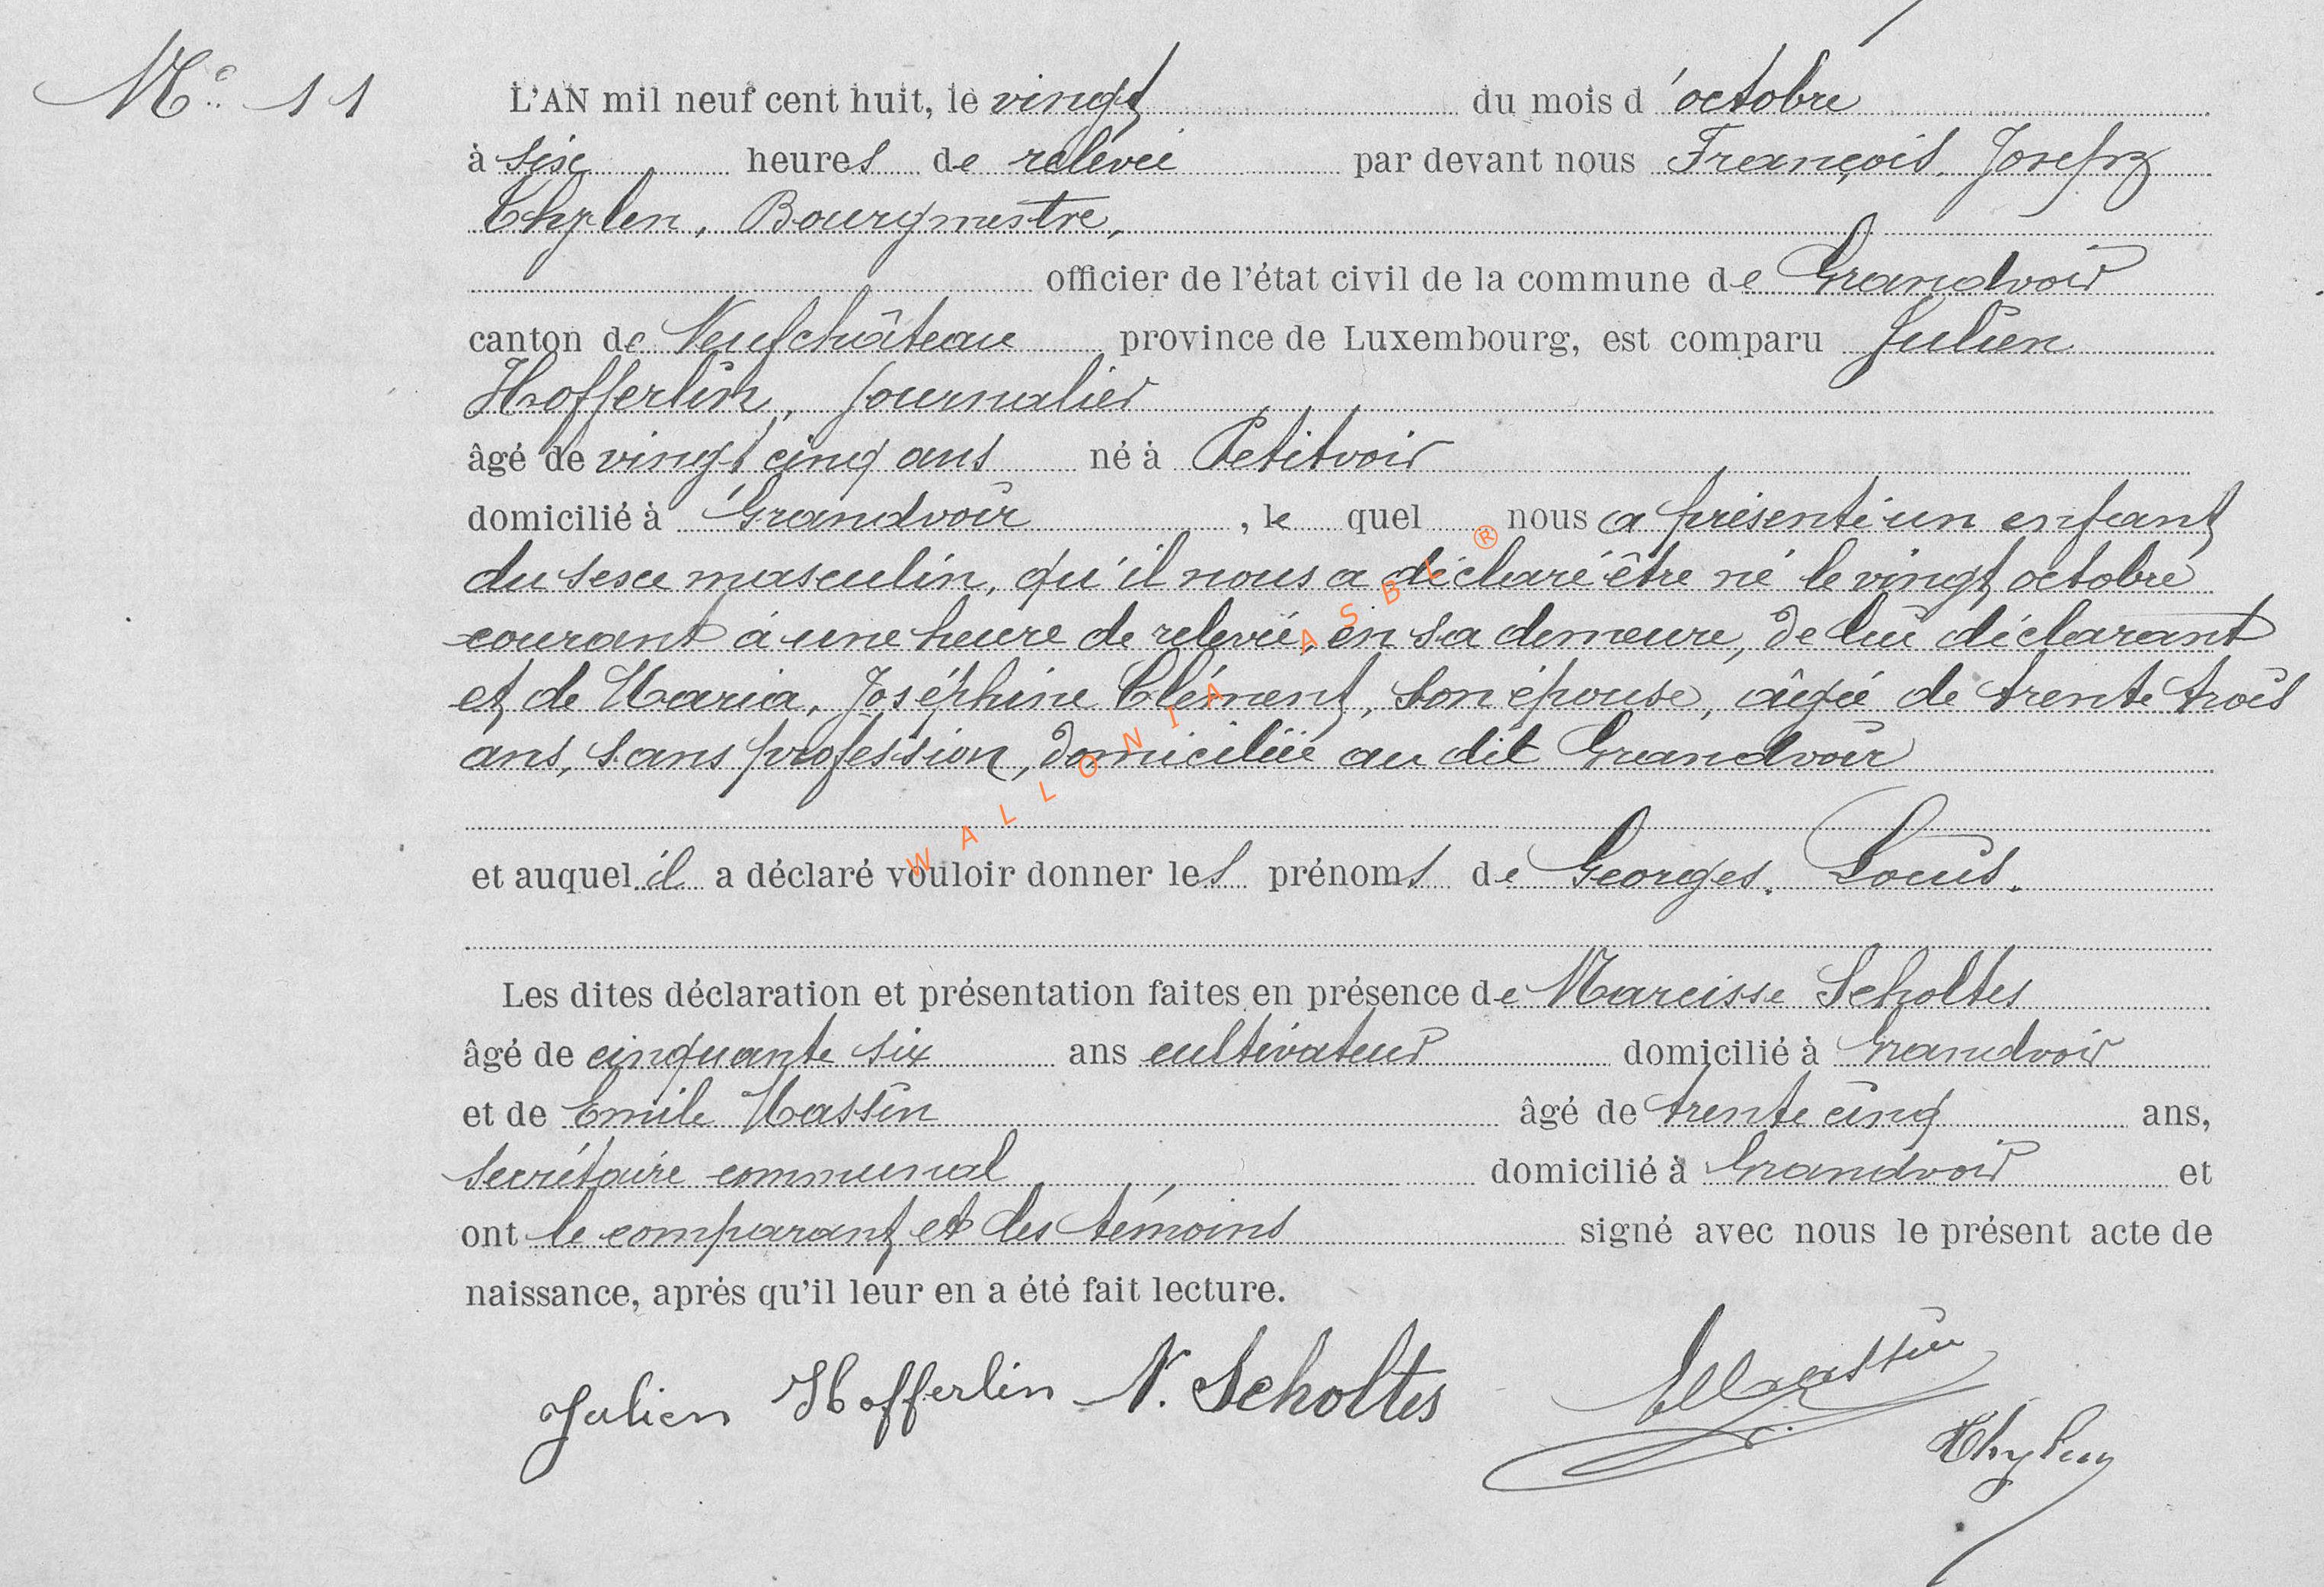 N° 11
L'AN mil neuf cent huit, le vingt du mois d'octobre
à six heures de relevée par devant nous François, Joseph
Thylen, Bourgmestre,
officier de l'état civil de la commune de Grandvoir
canton de Neufchâteau province de Luxembourg, est comparu Julien
Hofferlin, journalier
âgé de vingt cinq ans né à Petitvoir
domicilié à Grandvoir, le quel nous a présenté un enfant
du sexe masculin, qu'il nous a déclaré être né le vingt octobre
courant à une heure de relevée, en sa demeure, de lui déclarant
et de Maria, Joséphine Clément, son épouse, âgée de trente trois
ans, sans profession, domiciliée au dit Grandvoir
et auquel il a déclaré vouloir donner les prénoms de Georges, Louis.
Les dites déclaration et présentation faites en présence de Narcisse Scholtes
âgé de cinquante six ans cultivateur domicilié à Grandvoir
et de Emile Massin âgé de trente cinq ans,
secrétaire communal domicilié à Grandvoir et
ont le comparant et les témoins signé avec nous le présent acte de
naissance, après qu'il leur en a été fait lecture.
Julien Hofferlin N. Scholtes EMassin
Thylen
WALLONIA ASBL ®